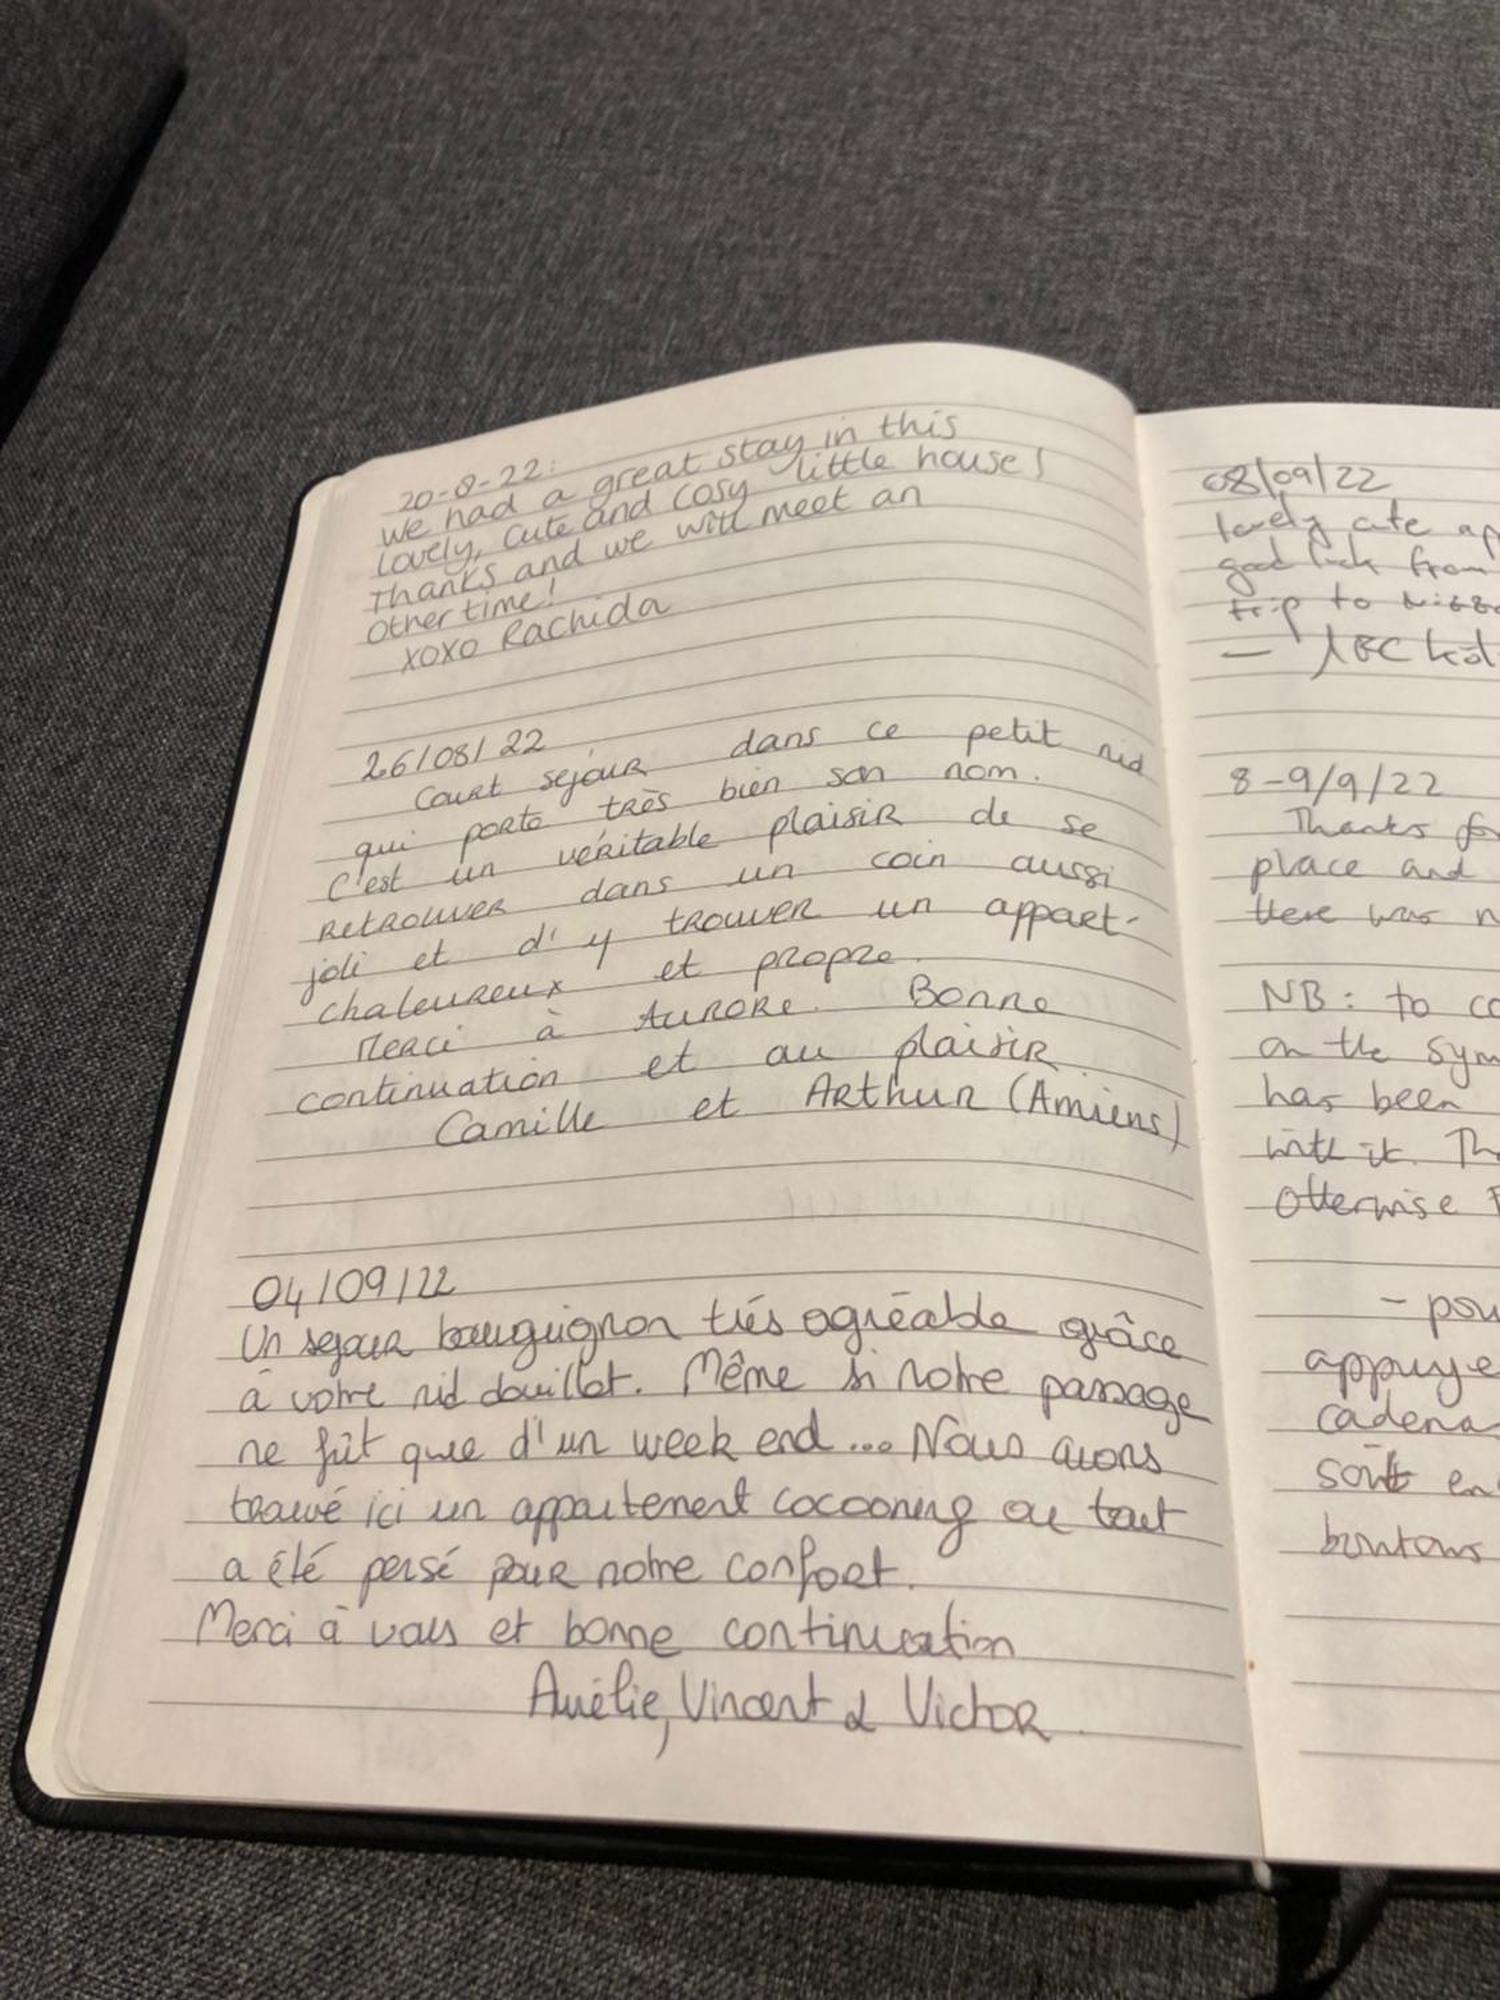 20-8-22:
we had a great stay in this
lovely, cute and cosy little house!
Thanks and we will meet an
other time!
xoxo Rachida
26/08/22
Court séjour dans ce petit nid
qui porte très bien son nom.
C'est un véritable plaisir de se
retrouver dans un coin aussi
joli et d'y trouver un appart-
chaleureux et propre.
Merci à Aurore. Bonne
continuation et au plaisir
Camille et Arthur (Amiens)
04/09/22
Un sejour bourguignon très agréable grâce
à votre nid douillet. Même si notre passage
ne fût que d'un week end... Nous avons
trouvé ici un appartement cocooning ou tout
a été pensé pour notre confort.
Merci à vous et bonne continuation
Aurélie, Vincent & Victor
08/09/22
lovely cute
good luck from
trip to
8-9/9/22
Thanks
place and
there was
NB: to
on the
has been
with it.
Otherwise
-
sont
boutons